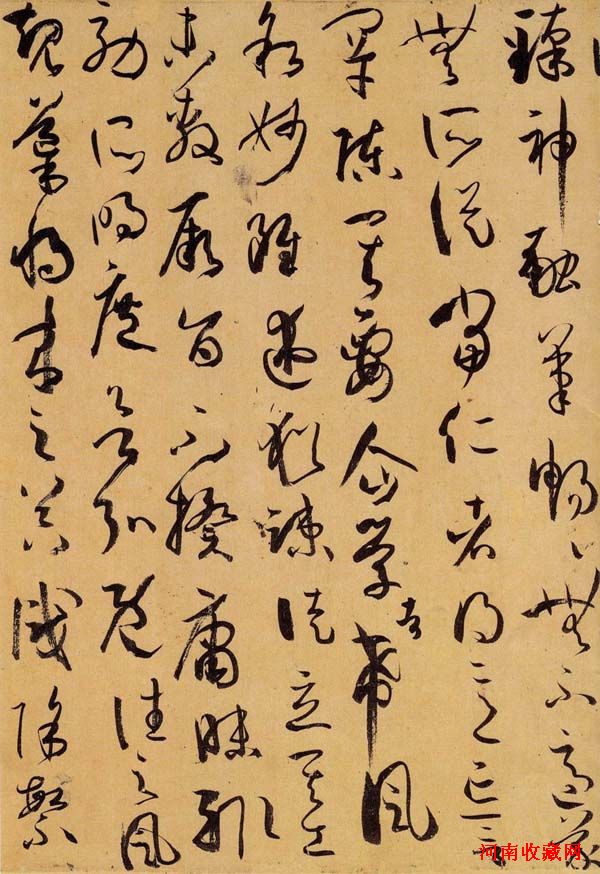 臻神融筆暢〻無不適蒙
無所從當仁者得意忘言
罕陳其要企學者希風
叙妙雖述猶疎徒立其工
未敷厥旨不揆庸昧輒
効所明庶欲弘既往之風
規導將来之器識除繁
河南收藏网